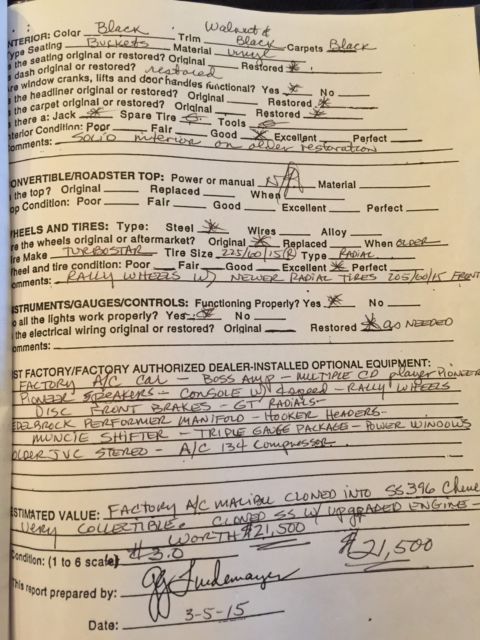 NTERIOR: Color Black Trim Walnut & Black Carpets Black
ype Seating Buckets Material vinyl
the seating original or restored? Original Restored
dash original or restored? restored
re window cranks, lifts and door handles functional? Yes No
the headliner original or restored? Original Restored
the carpet original or restored? Original Restored
there a: Jack Spare Tire Tools
terior Condition: Poor Fair Good Excellent Perfect
omments: SOLID interior on older restoration
ONVERTIBLE/ROADSTER TOP: Power or manual N/A Material
the top? Original Replaced When
op Condition: Poor Fair Good Excellent Perfect
HEELS AND TIRES: Type: Steel Wires Alloy
re the wheels original or aftermarket? Original Replaced When OLDER
ire Make TURBOSTAR Tire Size 225/60/15(R) Type RADIAL
heel and tire condition: Poor Fair Good Excellent Perfect
omments: RALLY WHEELS W/ NEWER RADIAL TIRES 205/60/15 FRONT
STRUMENTS/GAUGES/CONTROLS: Functioning Properly? Yes No
o all the lights work properly? Yes No
the electrical wiring original or restored? Original Restored as NEEDED
omments:
ST FACTORY/FACTORY AUTHORIZED DEALER-INSTALLED OPTIONAL EQUIPMENT:
FACTORY A/C Car - BOSS AMP - MULTIPLE CD player Pioneer
Pioneer SPEAKERS - CONSOLE W/ 4 speed - RALLY WHEELS
DISC FRONT BRAKES - GT RADIALS -
EDELBROCK PERFORMER MANIFOLD - HOOKER HEADERS -
MUNCIE SHIFTER - TRIPLE GAUGE PACKAGE - POWER WINDOWS
OLDER JVC STEREO - A/C 134 Compressor.
STIMATED VALUE: FACTORY A/C MALIBU CLONED INTO SS396 Cheve
VERY COLLECTIBLE. CLONED SS W/ UPGRADED ENGINE -
WORTH $21,500
Condition: (1 to 6 scale) # 3.0 $21,500
This report prepared by:
Date: 3-5-15